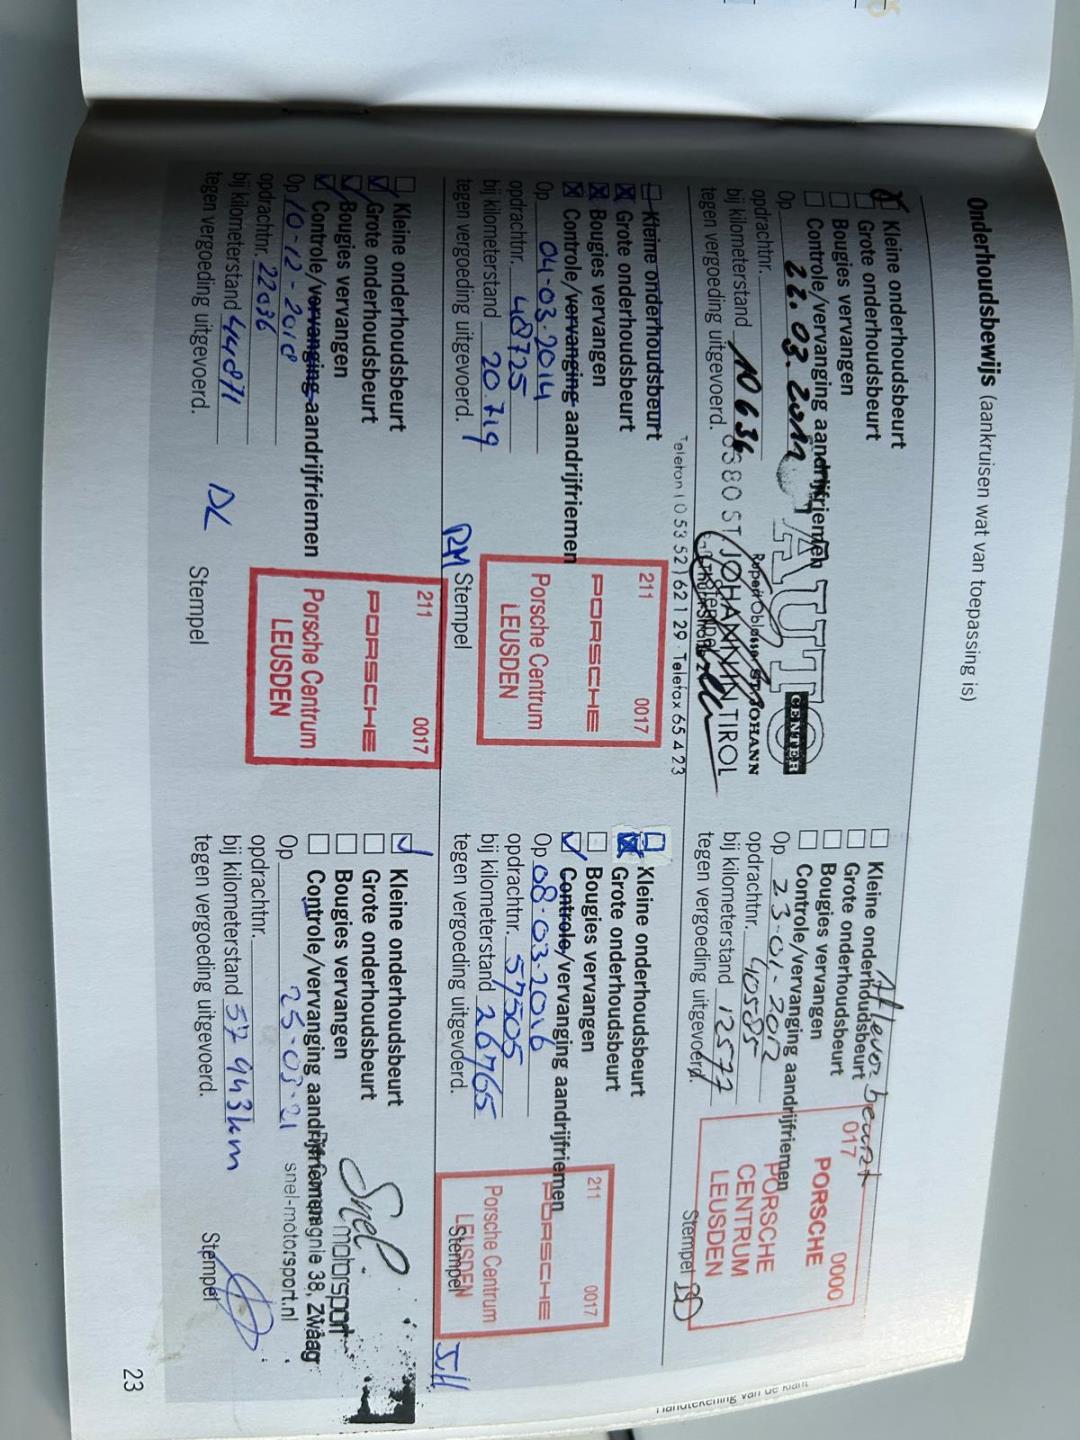 Onderhoudsbewijs (aankruisen wat van toepassing is)
Kleine onderhoudsbeurt
Grote onderhoudsbeurt
Bougies vervangen
Controle/vervanging aandrijfriemen
Op 22.03.2011
opdrachtnr.
bij kilometerstand 10634
tegen vergoeding uitgevoerd.
AUTO
CENTER
ST. JOHANN
6380 ST. JOHANN IN TIROL
Telefon (0 53 52) 62 1 29 Telefax 65 4 23
Aflever beurt
Kleine onderhoudsbeurt
Grote onderhoudsbeurt
Bougies vervangen
Controle/vervanging aandrijfriemen
Op 23-01-2012
opdrachtnr. 40585
bij kilometerstand 12577
tegen vergoeding uitgevoerd.
017 0000
PORSCHE
PORSCHE
CENTRUM
LEUSDEN
Stempel
Kleine onderhoudsbeurt
Grote onderhoudsbeurt
Bougies vervangen
Controle/vervanging aandrijfriemen
Op 04-03.2014
opdrachtnr. 48725
bij kilometerstand 20.719
tegen vergoeding uitgevoerd.
211 0017
PORSCHE
Porsche Centrum
LEUSDEN
RM Stempel
Kleine onderhoudsbeurt
Grote onderhoudsbeurt
Bougies vervangen
Controle/vervanging aandrijfriemen
Op 08-03-2016
opdrachtnr. 57505
bij kilometerstand 26765
tegen vergoeding uitgevoerd.
211 0017
PORSCHE
Porsche Centrum
LEUSDEN
Stempel
JH
Kleine onderhoudsbeurt
Grote onderhoudsbeurt
Bougies vervangen
Controle/vervanging aandrijfriemen
Op 10-12-2018
opdrachtnr. 22036
bij kilometerstand 44871
tegen vergoeding uitgevoerd.
211 0017
PORSCHE
Porsche Centrum
LEUSDEN
DL
Stempel
Kleine onderhoudsbeurt
Grote onderhoudsbeurt
Bougies vervangen
Controle/vervanging aandrijfriemen
Op 25-03-21
opdrachtnr.
bij kilometerstand 57 943 km
tegen vergoeding uitgevoerd.
Snel
motorsport
De Compagnie 38, Zwaag
snel-motorsport.nl
Stempel
Handtekening van de klant
23